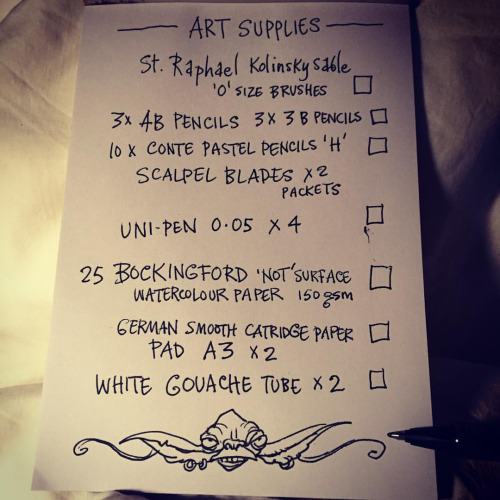 ART SUPPLIES
St. Raphael Kolinsky Sable
'O' SIZE BRUSHES
3x 4B PENCILS 3x 3B PENCILS
10 x CONTE PASTEL PENCILS 'H'
SCALPEL BLADES x 2
PACKETS
UNI-PEN 0.05 x 4
25 BOCKINGFORD 'NOT' SURFACE
WATERCOLOUR PAPER 150gsm
GERMAN SMOOTH CATRIDGE PAPER
PAD A3 x 2
WHITE GOUACHE TUBE x 2